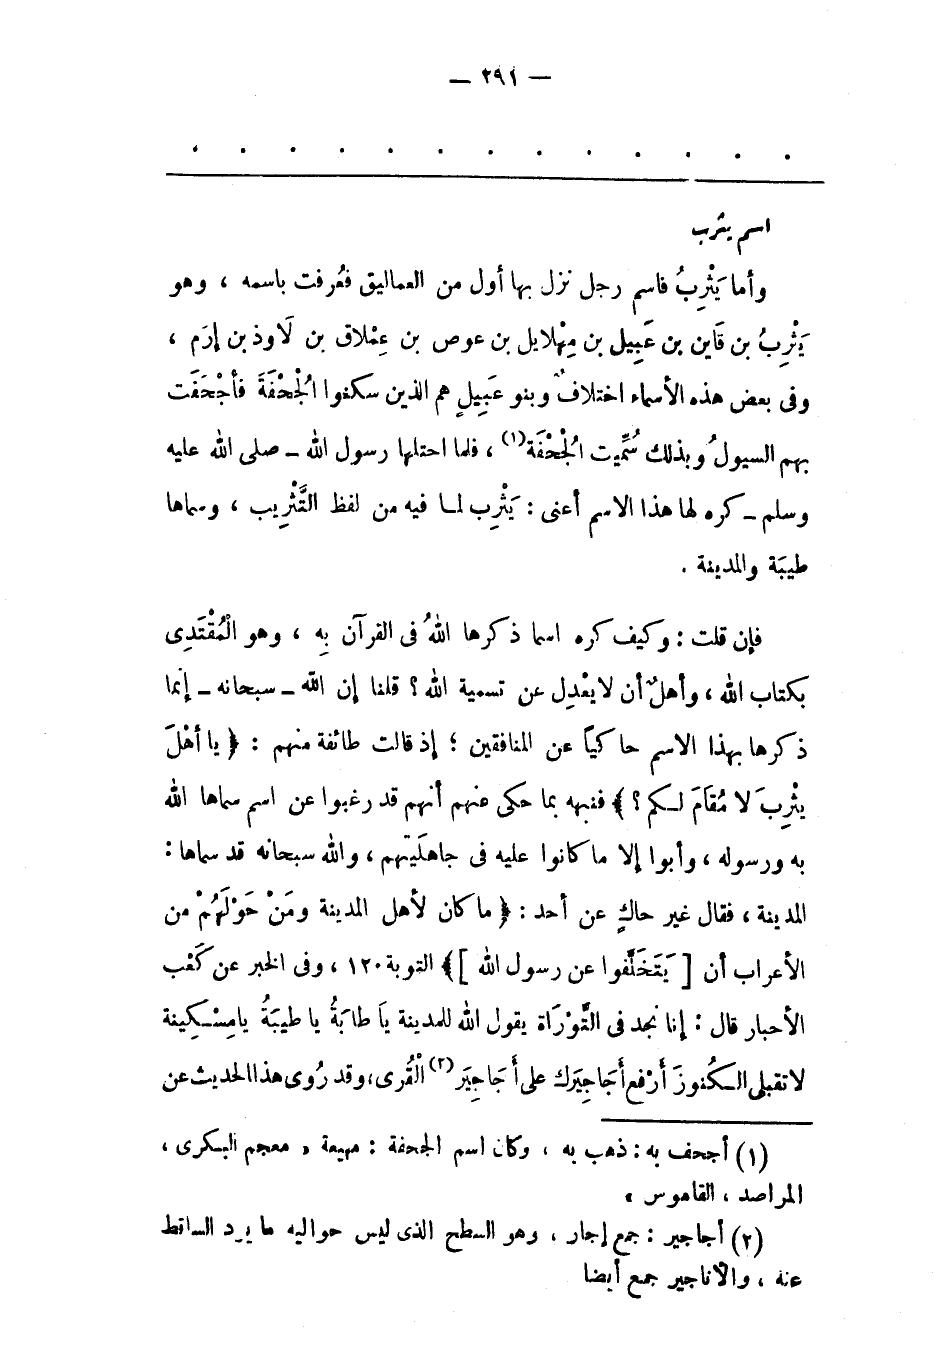 — ٢٩١ —
. . . . . . . . . . . . .
اسم يثرب
وأما يَثْرِبُ فاسم رجل نزل بها أول من العماليق فعُرفت باسمه ، وهو
يَثْرِبُ بن قَاين بن عَبِيل بن مِهْلايل بن عوص بن عِمْلاق بن لَاوذ بن إرَم ،
وفى بعض هذه الأسماء اختلافٌ وبنو عَبِيلٍ هم الذين سكنوا الْجُحْفَةَ فأجْحَفَت
بهم السيولُ وبذلك سُمِّيت الْجُحْفَة(١) ، فلما احتلها رسول الله ــ صلى الله عليه
وسلم ــ كره لها هذا الاسم أعنى : يَثْرِب لما فيه من لفظ التَّثْرِيب ، وسماها
طيبَة والمدينة .
فإن قلت : وكيف كره اسما ذكرها اللهُ فى القرآن بِه ، وهو الْمُقْتَدِى
بكتاب الله ، وأهلٌ أن لا يعْدِل عن تسمية الله ؟ قلنا إن الله ــ سبحانه ــ إنما
ذكرها بهذا الاسم حاكياً عن المنافقين ؛ إذ قالت طائفة منهم : ﴿ يا أهْلَ
يثْرِبَ لا مُقَامَ لكم ؟ ﴾ فنبه بما حكى عنهم أنهم قد رغبوا عن اسم سماها الله
به ورسوله ، وأبوا إلا ما كانوا عليه فى جاهلَيتهم ، والله سبحانه قد سماها :
المدينة ، فقال غير حاكٍ عن أحد : ﴿ ما كان لأهل المدينة ومَنْ حَوْلَهُمْ من
الأعراب أن [ يَتَخَلَّفوا عن رسول الله ] ﴾ التوبة ١٢٠ ، وفى الخبر عن كَعْب
الأحبار قال : إنا نجد فى التَّوْرَاة يقول الله للمدينة يَا طابَةُ يا طيبَةُ يا مِسْكِينة
لا تقبلى الكُنوزَ أرْفع أَجَاجِيَرك على أَجَاجِيَر(٢) الْقُرى ، وقد رُوى هذا الحديث عن
(١) أجحف به : ذهب به ، وكان اسم الجحفة : مهيعة « معجم البكرى ،
المراصد ، القاموس »
(٢) أجاجير : جمع إجار ، وهو السطح الذى ليس حواليه ما يرد الساقط
عنه ، والأناجير جمع أيضا